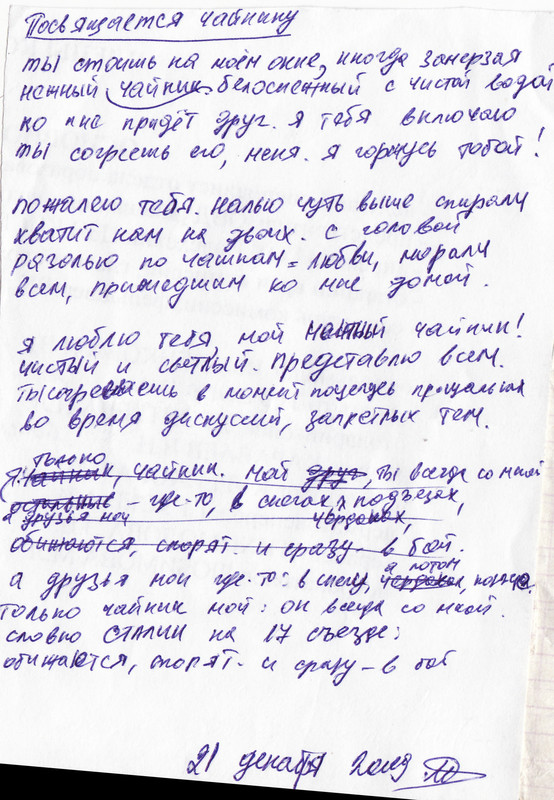 Посвящается чайнику
ты стоишь на моём окне, иногда замерзая
нежный чайник белоснежный с чистой водой
но мне придёт друг. я тебя включаю
ты согреешь его, меня. я горжусь тобой!
пожалею тебя. налью чуть выше спирали
хватит нам на двоих. с головой
разолью по чашкам = любви, морали
всем, пришедшим ко мне домой.
я люблю тебя, мой чайник!
чистый и светлый. представлю всем.
ты согреваешь в момент поцелуев прощальных
во время дискуссий, запретных тем.
только
я, чайник. мой друг, ты всегда со мной
остальные - где-то, в снегах, подъездах,
а друзья мои чердаках,
обижаются, спорят. и сразу - в бой.
а потом
а друзья мои где-то: в снегу, чердаках,
только чайник мой: он всегда со мной.
словно СТАЛИН на 17 съезде:
обижаются, спорят. и сразу - в бой
21 декабря